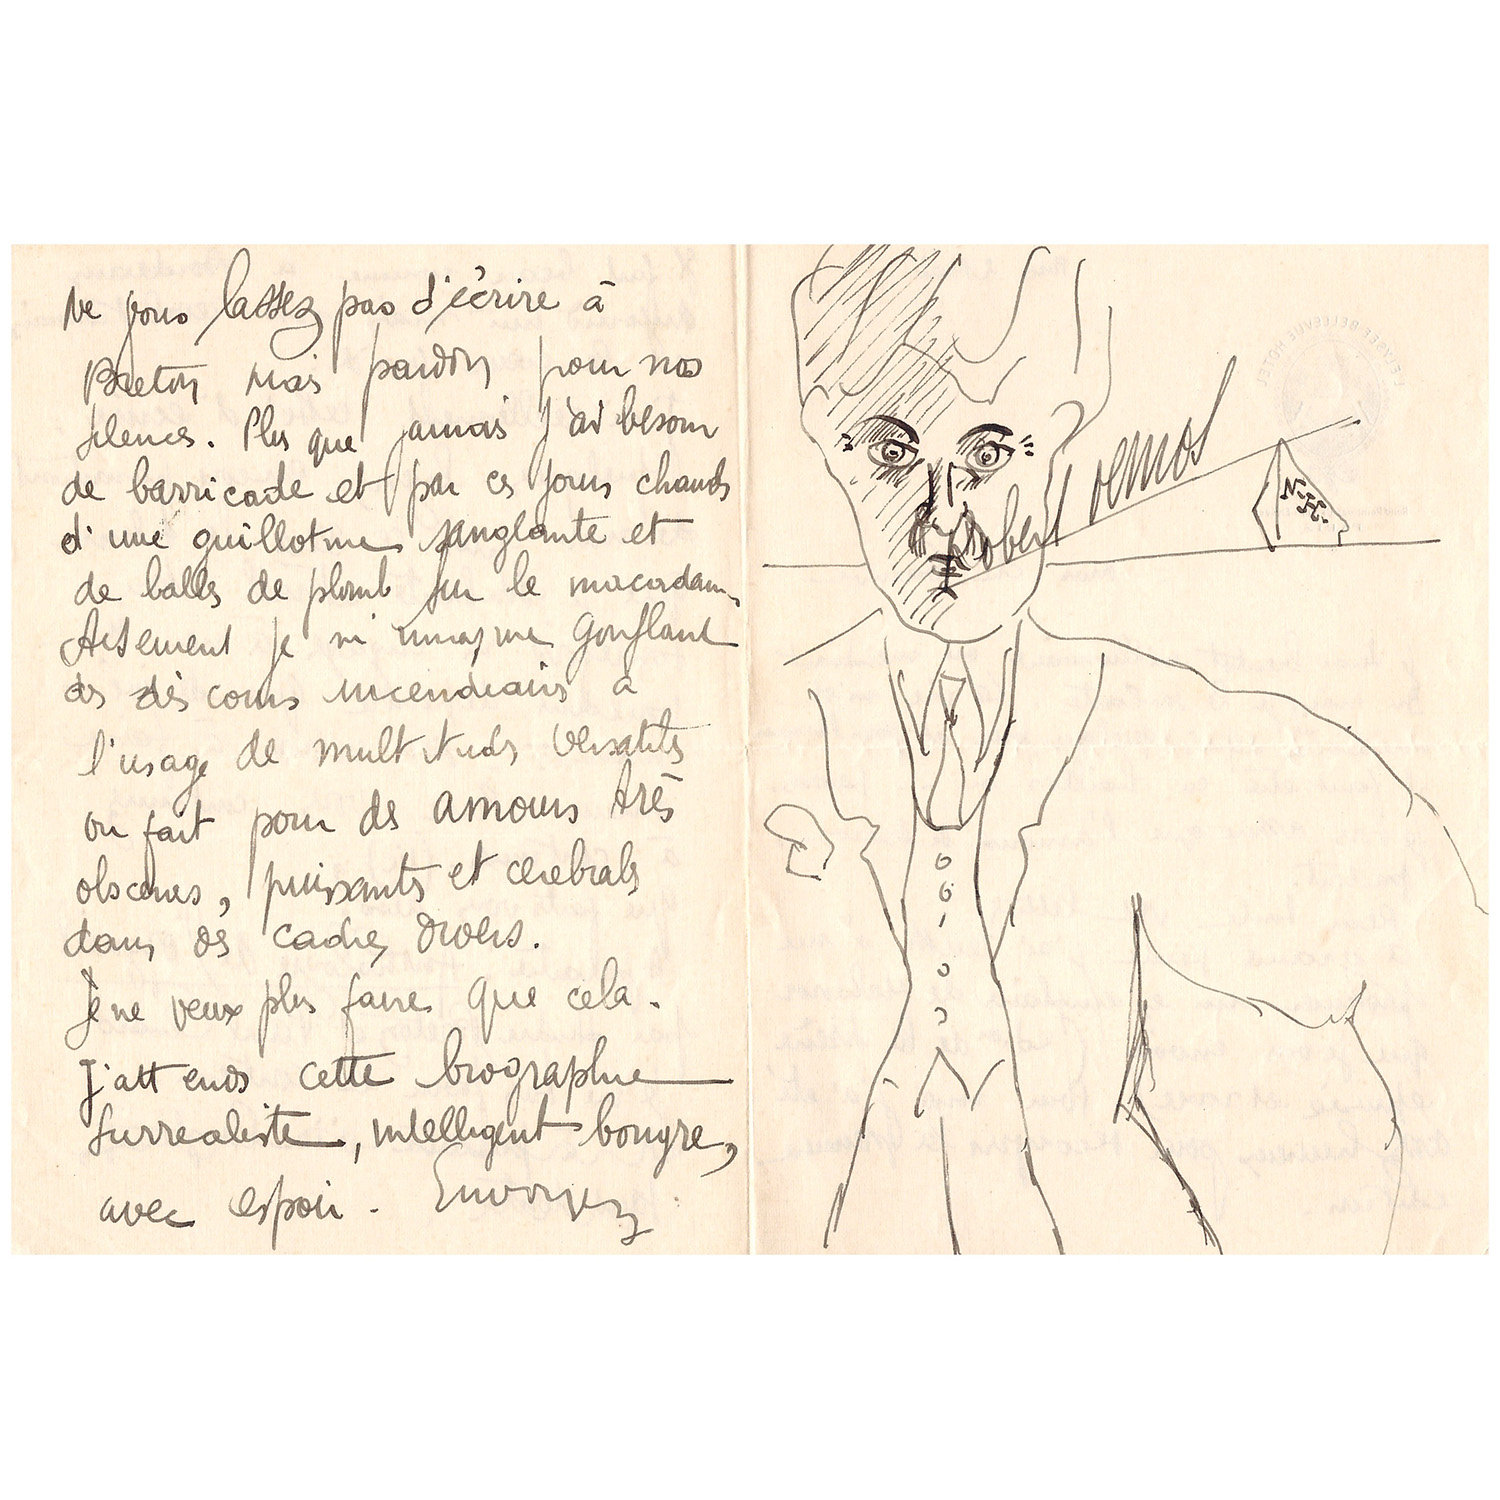 Ne vous lassez pas d'écrire à
Breton mais pardon pour nos
silences. Plus que jamais j'ai besoin
de barricade et par ces jours chauds
d'une guillotine sanglante et
de balles de plomb sur le macadam.
Aisement je m'imagine gonflant
des discours incendiaires à
l'usage de multitudes versatiles
ou fait pour des amours très
obscenes, puissants et cerebrals
dans des cadres divers.
Je ne veux plus faire que cela.
J'attends cette biographie
surrealiste, intelligent bougre,
avec espoir. Envoyez
Robert Desnos
N.H.
ELYSEE BELLEVUE HOTEL